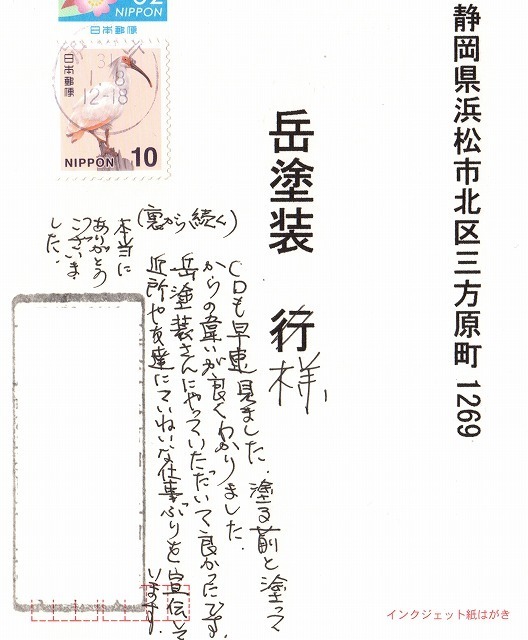 静岡県浜松市北区三方原町 1269
岳塗装 行
様
NIPPON
日本郵便
日本郵便
31
1. 8
12-18
NIPPON 10
(裏から続く)
CDも早速見ました。塗る前と塗って
からの違いが良くわかりました。
岳塗装さんにやっていただいて良かったです。
近所や友達にていねいな仕事ぶりを宣伝して
います。
本当に
ありがとう
ございま
した。
インクジェット紙はがき